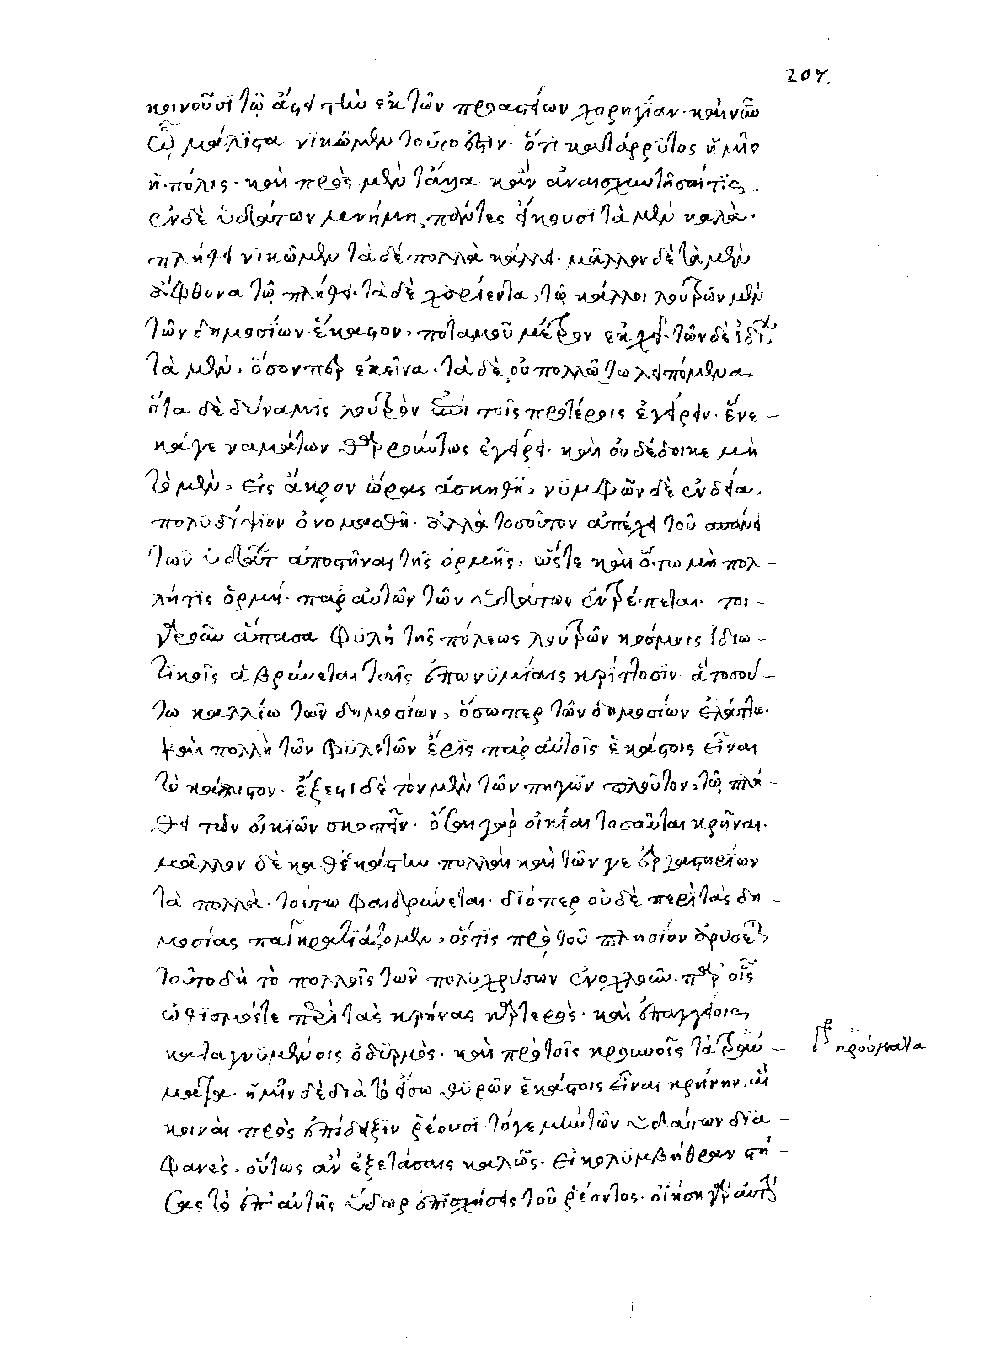 κοινοῦσι τῷ ἄστει τὴν ἐκ τῶν προαστείων χορηγίαν· καὶ μὴν
ᾧ μάλιστα νικῶμεν τοῦτό ἐστιν· ὅτι κατάρρυτος ἡμῖν
ἡ πόλις· καὶ πρὸς μὲν τἄλλα κἂν ἀναισχυντήσαι τις,
ἐν δὲ ὑδάτων μνήμη, πάντες εἴκουσι τὰ μὲν καλὰ·
πλήθει νικῶμεν τὰ δὲ πολλὰ κάλλει· μᾶλλον δὲ τὰ μὲν
ἄφθονα τῷ πλήθει· τὰ δὲ χαρίεντα, τῷ κάλλει λουτρῶν μὲν
τῶν δημοσίων ἕκαστον, ποταμοῦ μέτρον ἐκχεῖ· τῶν δὲ ἰδίων
τὰ μὲν, ὅσον περ ἐκεῖνα· τὰ δὲ οὐ πολλῶ τω λειπόμενα.
ὅτω δὲ δύναμις λουτρὸν ἐπὶ τοῖς προτέροις ἐγείρειν· ἕνε-
κά γε ναμάτων θαρρούντως ἐγείρει· καὶ οὐ δέδοικε μὴ
τὸ μὲν, εἰς ἄκρον ὥρας ἀσκηθῆ, νυμφῶν δὲ ἐνδεία,
πολυδίψιον ὀνομασθῆ· ἀλλὰ τοσοῦτον ἀπέχει τοῦ σπάνει
τῶν ὑδάτων ἀποστῆναι τῆς ὁρμῆς, ὥστε καὶ ὅτω μὴ πολ-
λή τις ὁρμή· παρ' αὐτῶν τῶν ὑδάτων ἐντρέπεται· τοι-
γαροῦν ἅπασα φυλὴ τῆς πόλεως λουτρῶν κόσμοις ἰδιω-
τικοῖς ἁβρύνεται ταῖς ἐπωνυμίαις κρίττοσιν· ἃ τοσού-
τω καλλίω τῶν δημοσίων, ὅσωπερ τῶν δημοσίων ἐλάττω·
καὶ πολλὴ τῶν φυλετῶν ἔρις παρ' αὐτοῖς ἑκάστοις εἶναι
τὸ κάλλιστον· ἔξεστι δὲ τὸν μὲν τῶν πηγῶν πλοῦτον, τῷ πλή-
θει τῶν οἰκιῶν σκοπεῖν· ὅσαι γὰρ οἰκίαι τοσαῦται κρῆναι·
μᾶλλον δὲ καθ' ἑκάστην πολλαὶ καὶ τῶν γε ἐργαστηρίων
τὰ πολλὰ· τούτω φαιδρύνεται· διόπερ οὐδὲ περὶ τὰς δη-
μοσίας παγκρατιάζομεν, ὅστις πρὸ τοῦ πλησίον ἀρύσεται,
τοῦτο δὴ τὸ πολλοῖς τῶν πολυχρύσων ἐνοχλοῦν· παρ' οἷς
ὠθισμός τε περὶ τὰς κρήνας καρτερὸς· καὶ ἐπ' ἀγγείοις
καταγνυμένοις ὀδυρμὸς· καὶ πρὸ τοῖς κρουνοῖς τὰ τραύ-
ματα· ἡμῖν δὲ διὰ τὸ εἴσω θυρῶν ἑκάστοις εἶναι κρήνην, αἱ
κοιναὶ πρὸς ἐπίδειξιν ῥέουσι τό γε μὴν τῶν ὑδάτων δια-
φανὲς, οὕτως ἂν ἐξετάσαις καλῶς· εἰ κολυμβήθραν πλή-
σας τὸ ἐπ' αὐτῆς ὕδωρ ἐπισχήσεις τοῦ ῥέοντος· οἰήση γὰρ αὐτὴν